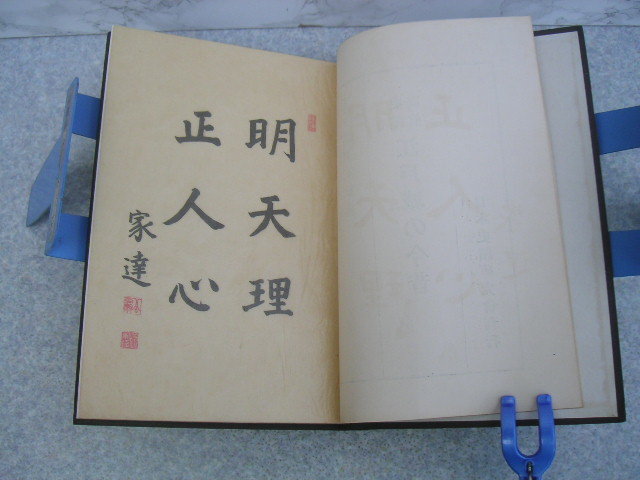 明天理
正人心
家達